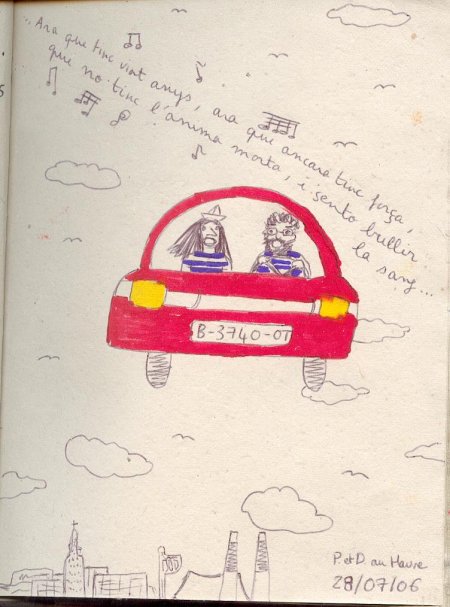 ..Ara que tinc vint anys, ara que ancara tinc força,
que no tinc l'ànima morta, i sento bullir
la sang...
B-3740-OT
P. et D. au Havre
28/07/06